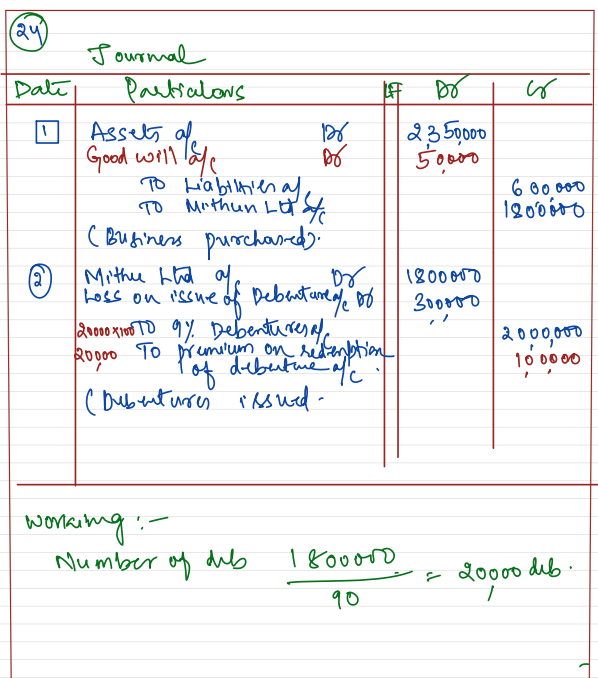 24
Journal
Date Particulars LF Dr Cr
1 Assets a/c Dr 2,350,000
Goodwill a/c Dr 50,000
To Liabilities a/c 600,000
To Mithun Ltd a/c 1800000
(Business purchased).
2 Mithu Ltd a/c Dr 1800000
Loss on issue of Debenture a/c Dr 300,000
20000x100 To 9% Debentures a/c 2,000,000
20,000 To premium on redemption 100,000
of debenture a/c.
(Debentures issued.
Working :-
Number of deb 1800000 / 90 = 20,000 deb.